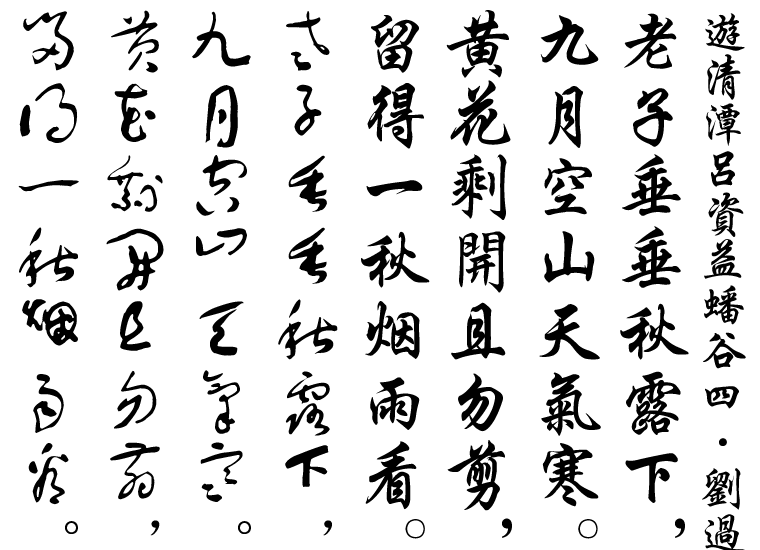 遊清潭呂資益蟠谷四·劉過
老子垂垂秋露下,
九月空山天氣寒。
黃花剩開且勿剪,
留得一秋烟雨看。
老子垂垂秋露下,
九月空山天氣寒。
黃花剩開且勿剪,
留得一秋烟雨看。